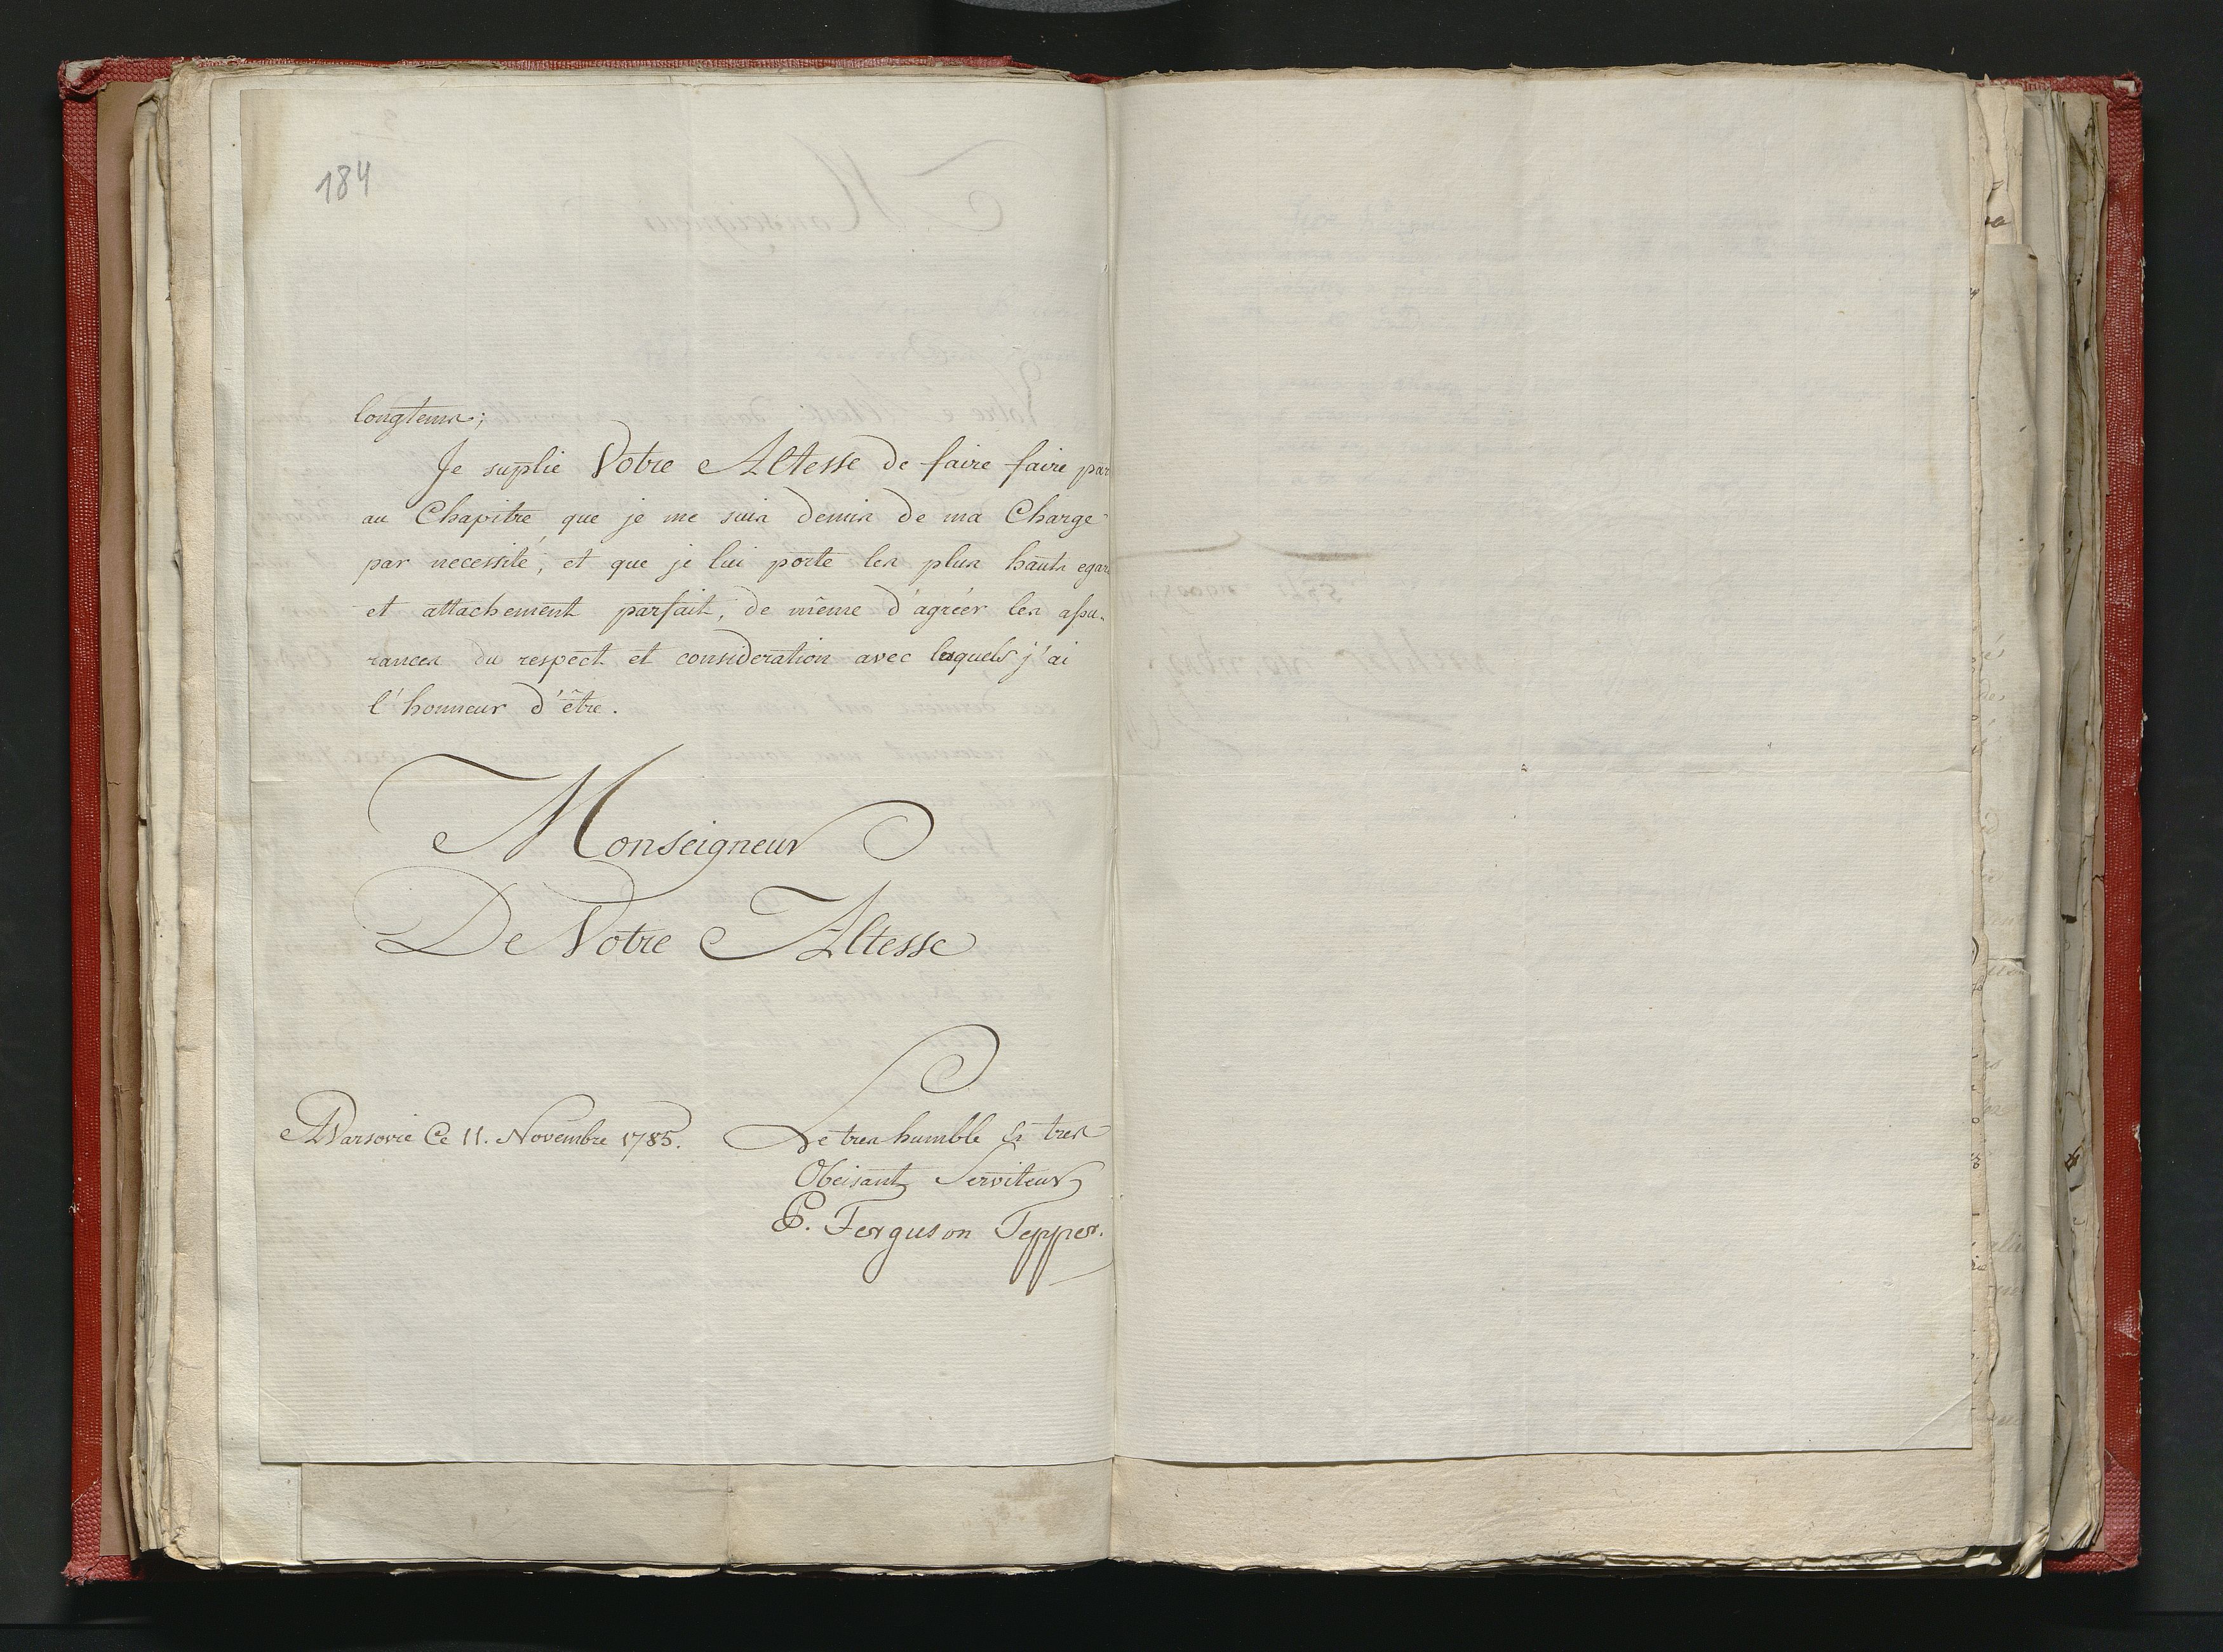 184
longtems;
Je suplie Votre Altesse de faire faire par
au Chapitre, que je me suis demis de ma Charge
par necessité, et que je lui porte les plus hauts egar
et attachement parfait, de même d'agréer les assu-
rances du respect et consideration avec lesquels j'ai
l'honneur d'être.
Monseigneur
De Votre Altesse
A Varsovie Ce 11. Novembre 1785.
Le tres humble & tres
Obeisant Serviteur
P. Ferguson Tepper.